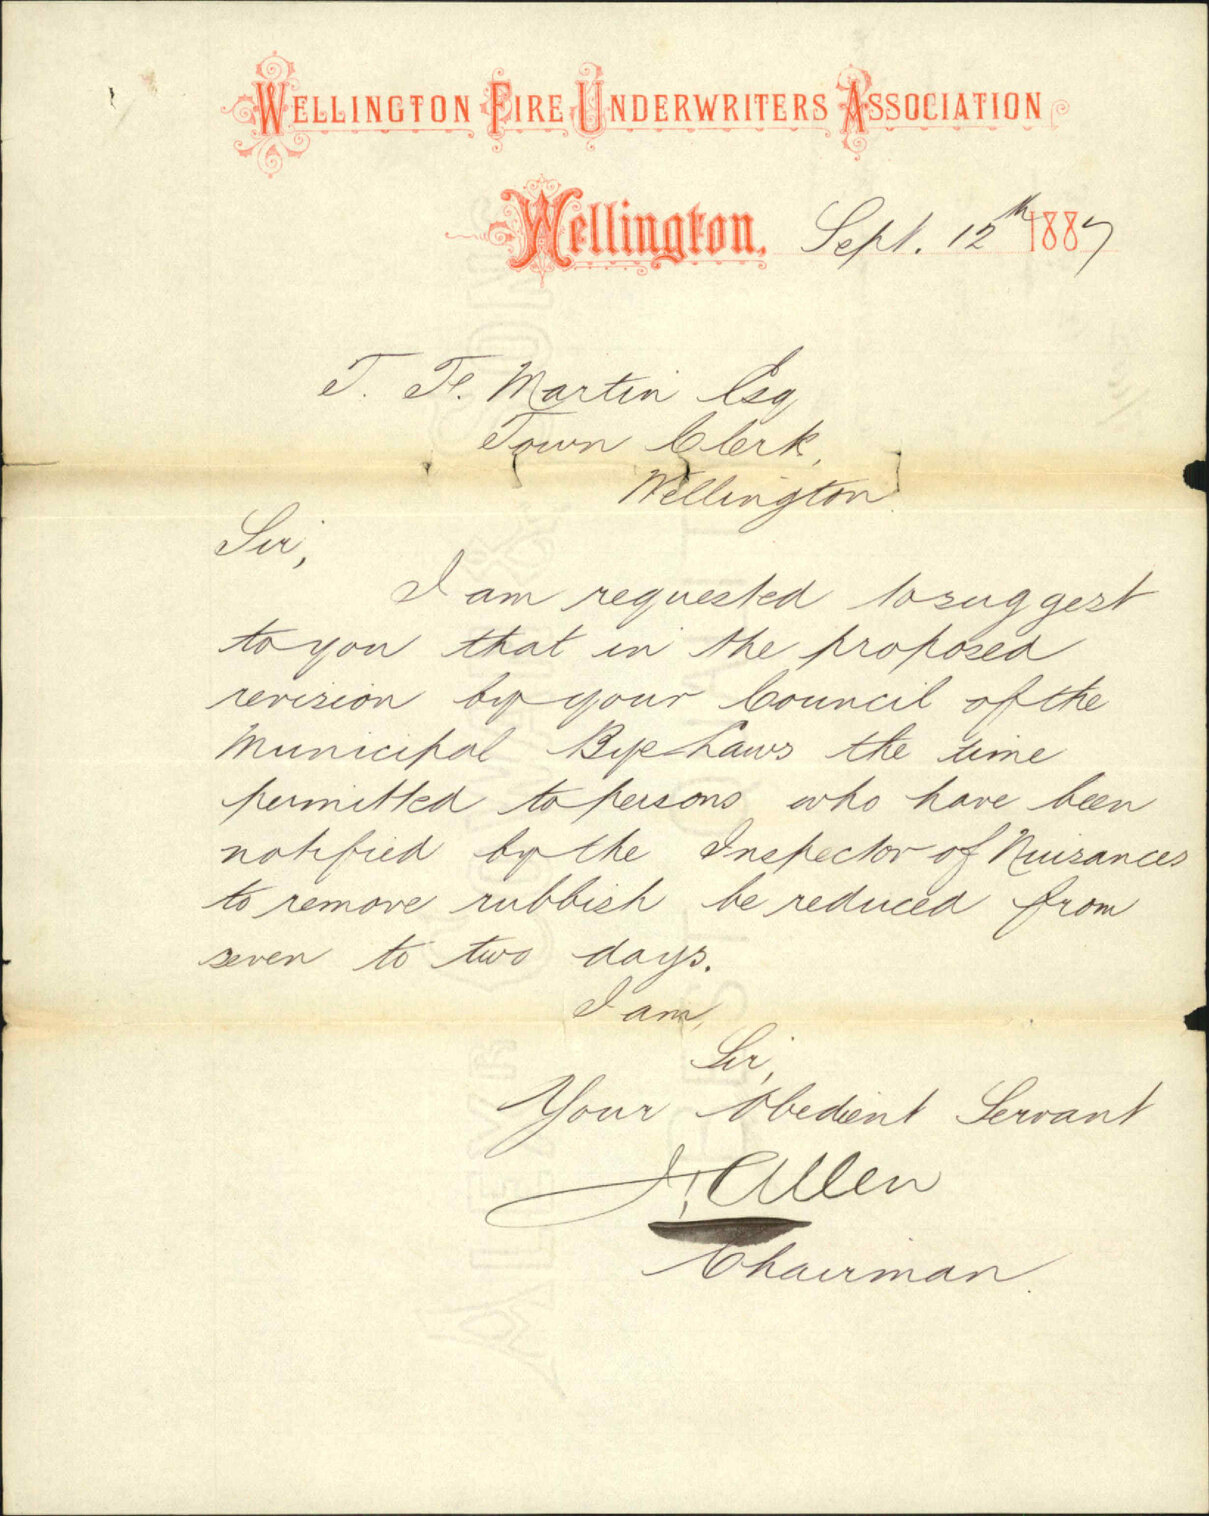 WELLINGTON FIRE UNDERWRITERS ASSOCIATION
Wellington, Sept. 12th 1887
T. F. Martin Esq
Town Clerk,
Wellington.
Sir,
I am requested to suggest
to you that in the proposed
revision by your Council of the
Municipal Bye-Laws the time
permitted to persons who have been
notified by the Inspector of Nuisances
to remove rubbish be reduced from
seven to two days.
I am,
Sir,
Your Obedient Servant
J. Allen
Chairman.